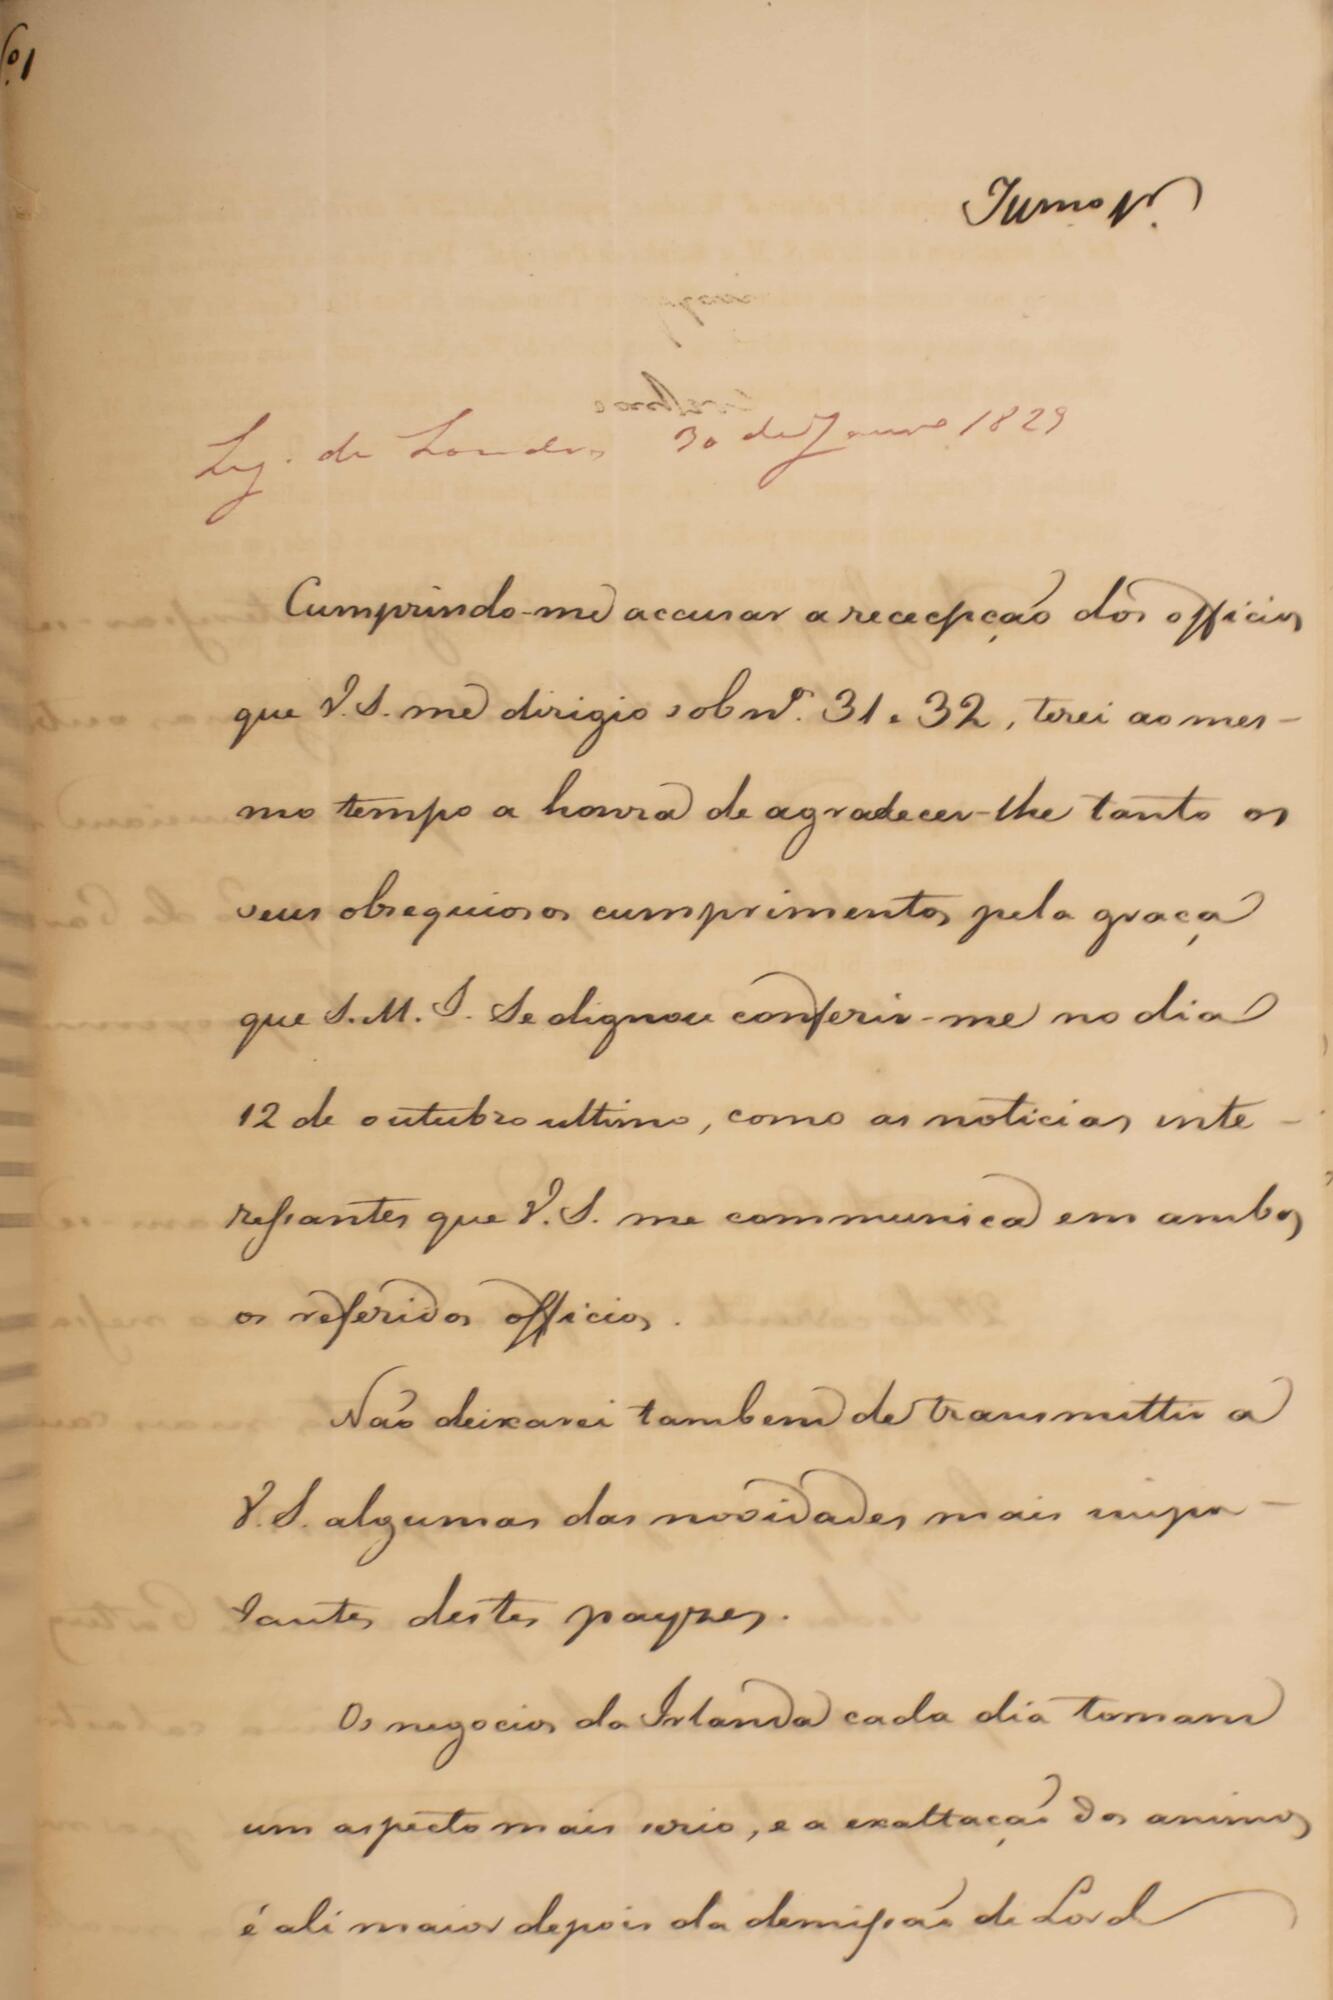 Leg. de Londres 30 de Janro 1829
Cumprindo-me accusar a recepção dos officios
que V.S. me dirigio sob nº. 31 e 32, terei ao mes-
mo tempo a honra de agradecer-lhe tanto os
seus obsequiosos cumprimentos pela graça
que S.M.I. Se dignou conferir-me no dia
12 de outubro ultimo, como as noticias inte-
ressantes que V.S. me communica em ambos
os referidos officios.
Não deixarei tambem de transmittir a
V.S. algumas das novidades mais impor-
tantes destes payzes.
Os negocios da Irlanda cada dia tomam
um aspecto mais serio, e a exaltação dos animos
é ali maior depois da demissão de Lord